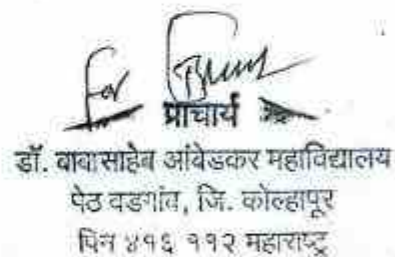 for
प्राचार्य
डॉ. बाबासाहेब आंबेडकर महाविद्यालय
पेठ वडगांव, जि. कोल्हापूर
पिन ४१६ ११२ महाराष्ट्र